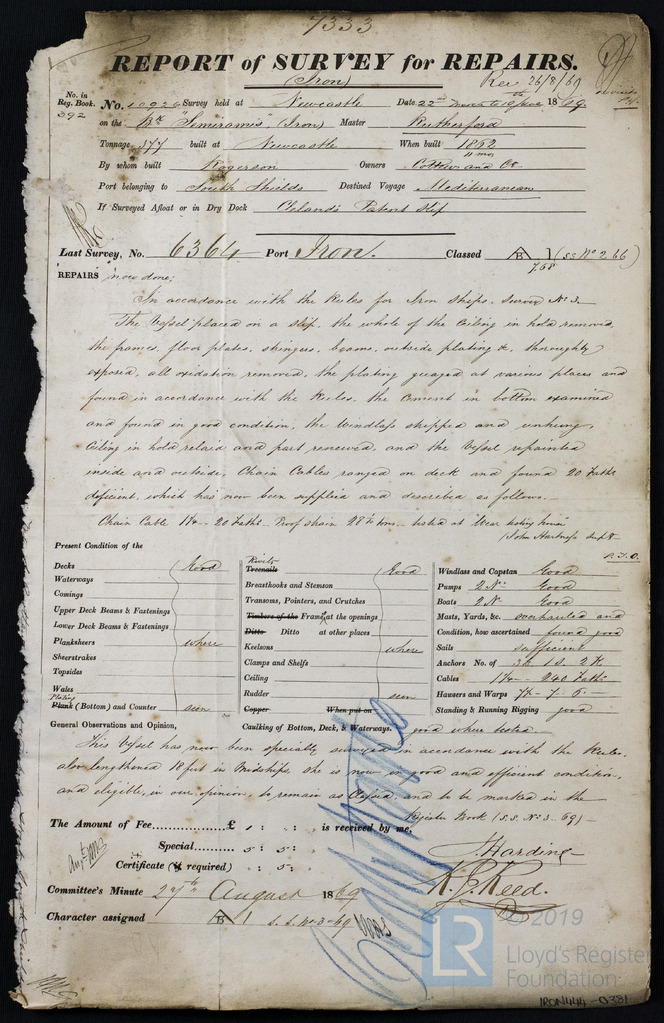 7333
REPORT of SURVEY for REPAIRS.
(Iron)
Rec 26/8/69
No. in Reg. Book.
392
No. 10926 Survey held at Newcastle Date 22nd 1869
on the Bk "Semiramis" (Iron) Master Rutherford
Tonnage 377 built at Newcastle When built 1862
11 mo
By whom built Rogerson Owners and Co
Port belonging to South Shields Destined Voyage Mediterranean
If Surveyed Afloat or in Dry Dock Cleland's Patent Slip
Last Survey, No. 6364 Port Iron. Classed A B 1 (SS No 2 66)
7,68
REPAIRS now done;
In accordance with the Rules for Iron Ships. Survey No 3.
The Vessel placed on a slip, the whole of the Ceiling in hold removed,
the frames, floor plates, stringers, beams, outside plating &c, thoroughly
exposed, all oxidation removed, the plating guaged at various places and
found in accordance with the Rules, the cement in bottom examined
and found in good condition, the windlass stripped and unhung,
Ceiling in hold relaid and part renewed, and the Vessel repainted
inside and outside. Chain Cables ranged on deck and found 20 Faths
deficient, which has now been supplied and described as follows.
Chain Cable 20 Faths. Proof strain tested at Wear testing house
(John Hartness Supt.
P.T.O.
Present Condition of the
Decks Good
Waterways
Comings
Upper Deck Beams & Fastenings
Lower Deck Beams & Fastenings
Planksheers where
Sheerstrakes
Topsides
Wales
Plating
Plank (Bottom) and Counter seen
Rivets
Treenails Good
Breasthooks and Stemson
Transoms, Pointers, and Crutches
Timbers of the Frames at the openings
Ditto Ditto at other places
Keelsons where
Clamps and Shelfs
Ceiling
Rudder seen
Copper When put on
Caulking of Bottom, Deck, & Waterways. good where tested.
Windlass and Capstan Good
Pumps 2 No. Good
Boats 2 N. Good
Masts, Yards, &c. overhauled and
Condition, how ascertained found good
Sails sufficient
Anchors No. of 3B 1S. 2K
Cables 240 Faths
Hawsers and Warps
Standing & Running Rigging good
General Observations and Opinion,
This Vessel has now been specially surveyed in accordance with the Rules,
also lengthened 18 feet in Midships, she is now in good and efficient condition,
and eligible, in our opinion, to remain as Classed, and to be marked in the
Register Book (S.S. No. 3 - 69)
The Amount of Fee............... £ 1 : " : " is received by me,
Special...... 5 : 5 :
Certificate (if required) " : 5 :
J. Harding
K. J. Reed.
Committee's Minute 27th August 1869
Character assigned A B 1 S.S. No 3-69
© 2019
LR
Lloyd's Register
Foundation
IRON444-0331